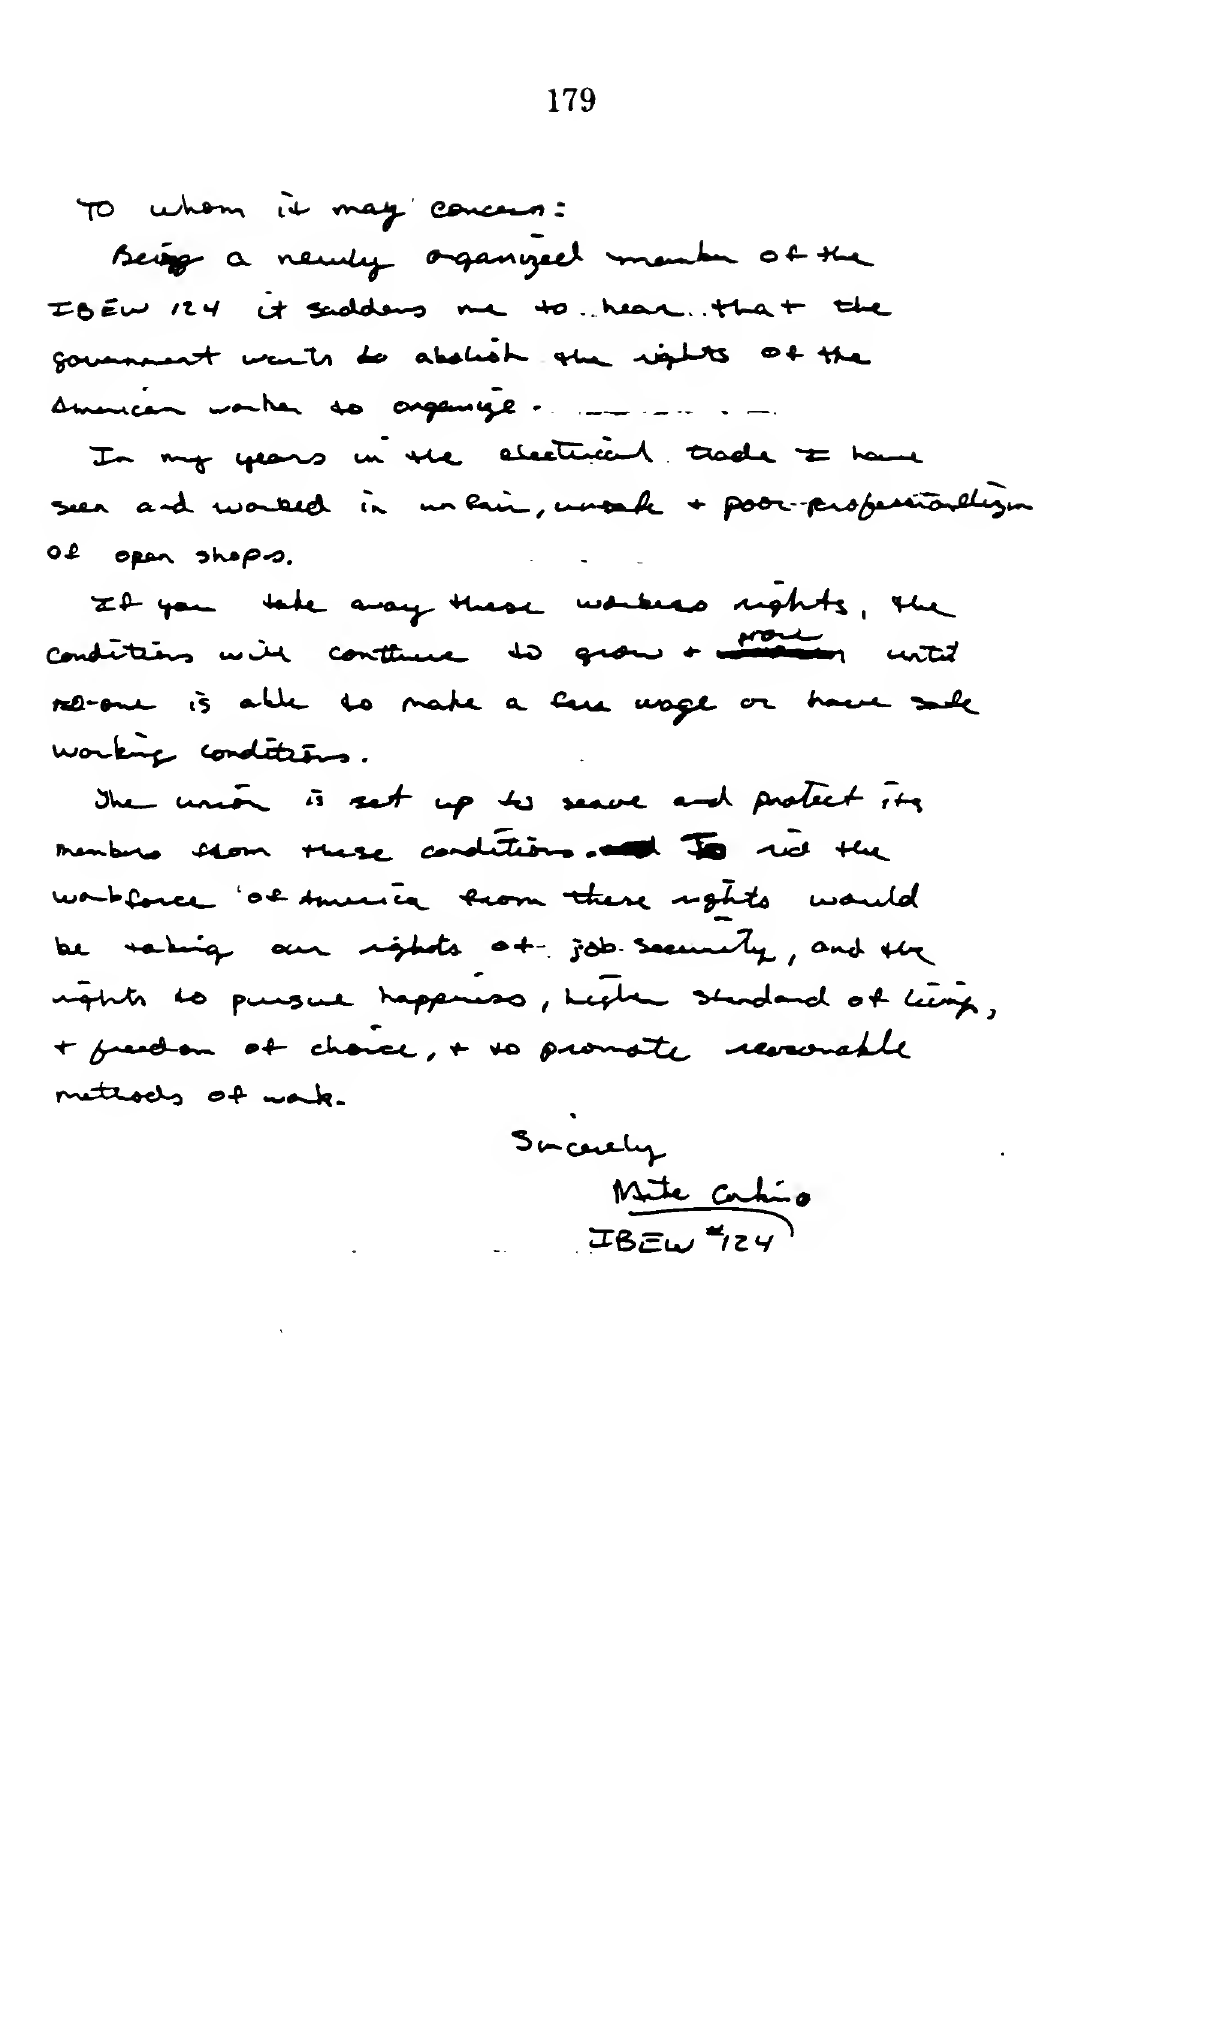 179
To whom it may concern:
Being a newly organized member of the
IBEW 124 it saddens me to hear that the
government wants to abolish the rights of the
American worker to organize.
In my years in the electrical trade I have
seen and worked in unfair, unsafe + poor-professionallizm
of open shops.
If you take away these workers rights, the
conditions will continue to grow + until
no-one is able to make a fare wage or have safe
working conditions.
The union is set up to serve and protect its
members from these conditions. To rid the
workforce of America from these rights would
be taking our rights of job security, and the
rights to pursue happiness, higher standard of living,
+ freedom of choice, + to promote reasonable
methods of work.
Sincerely
IBEW #124